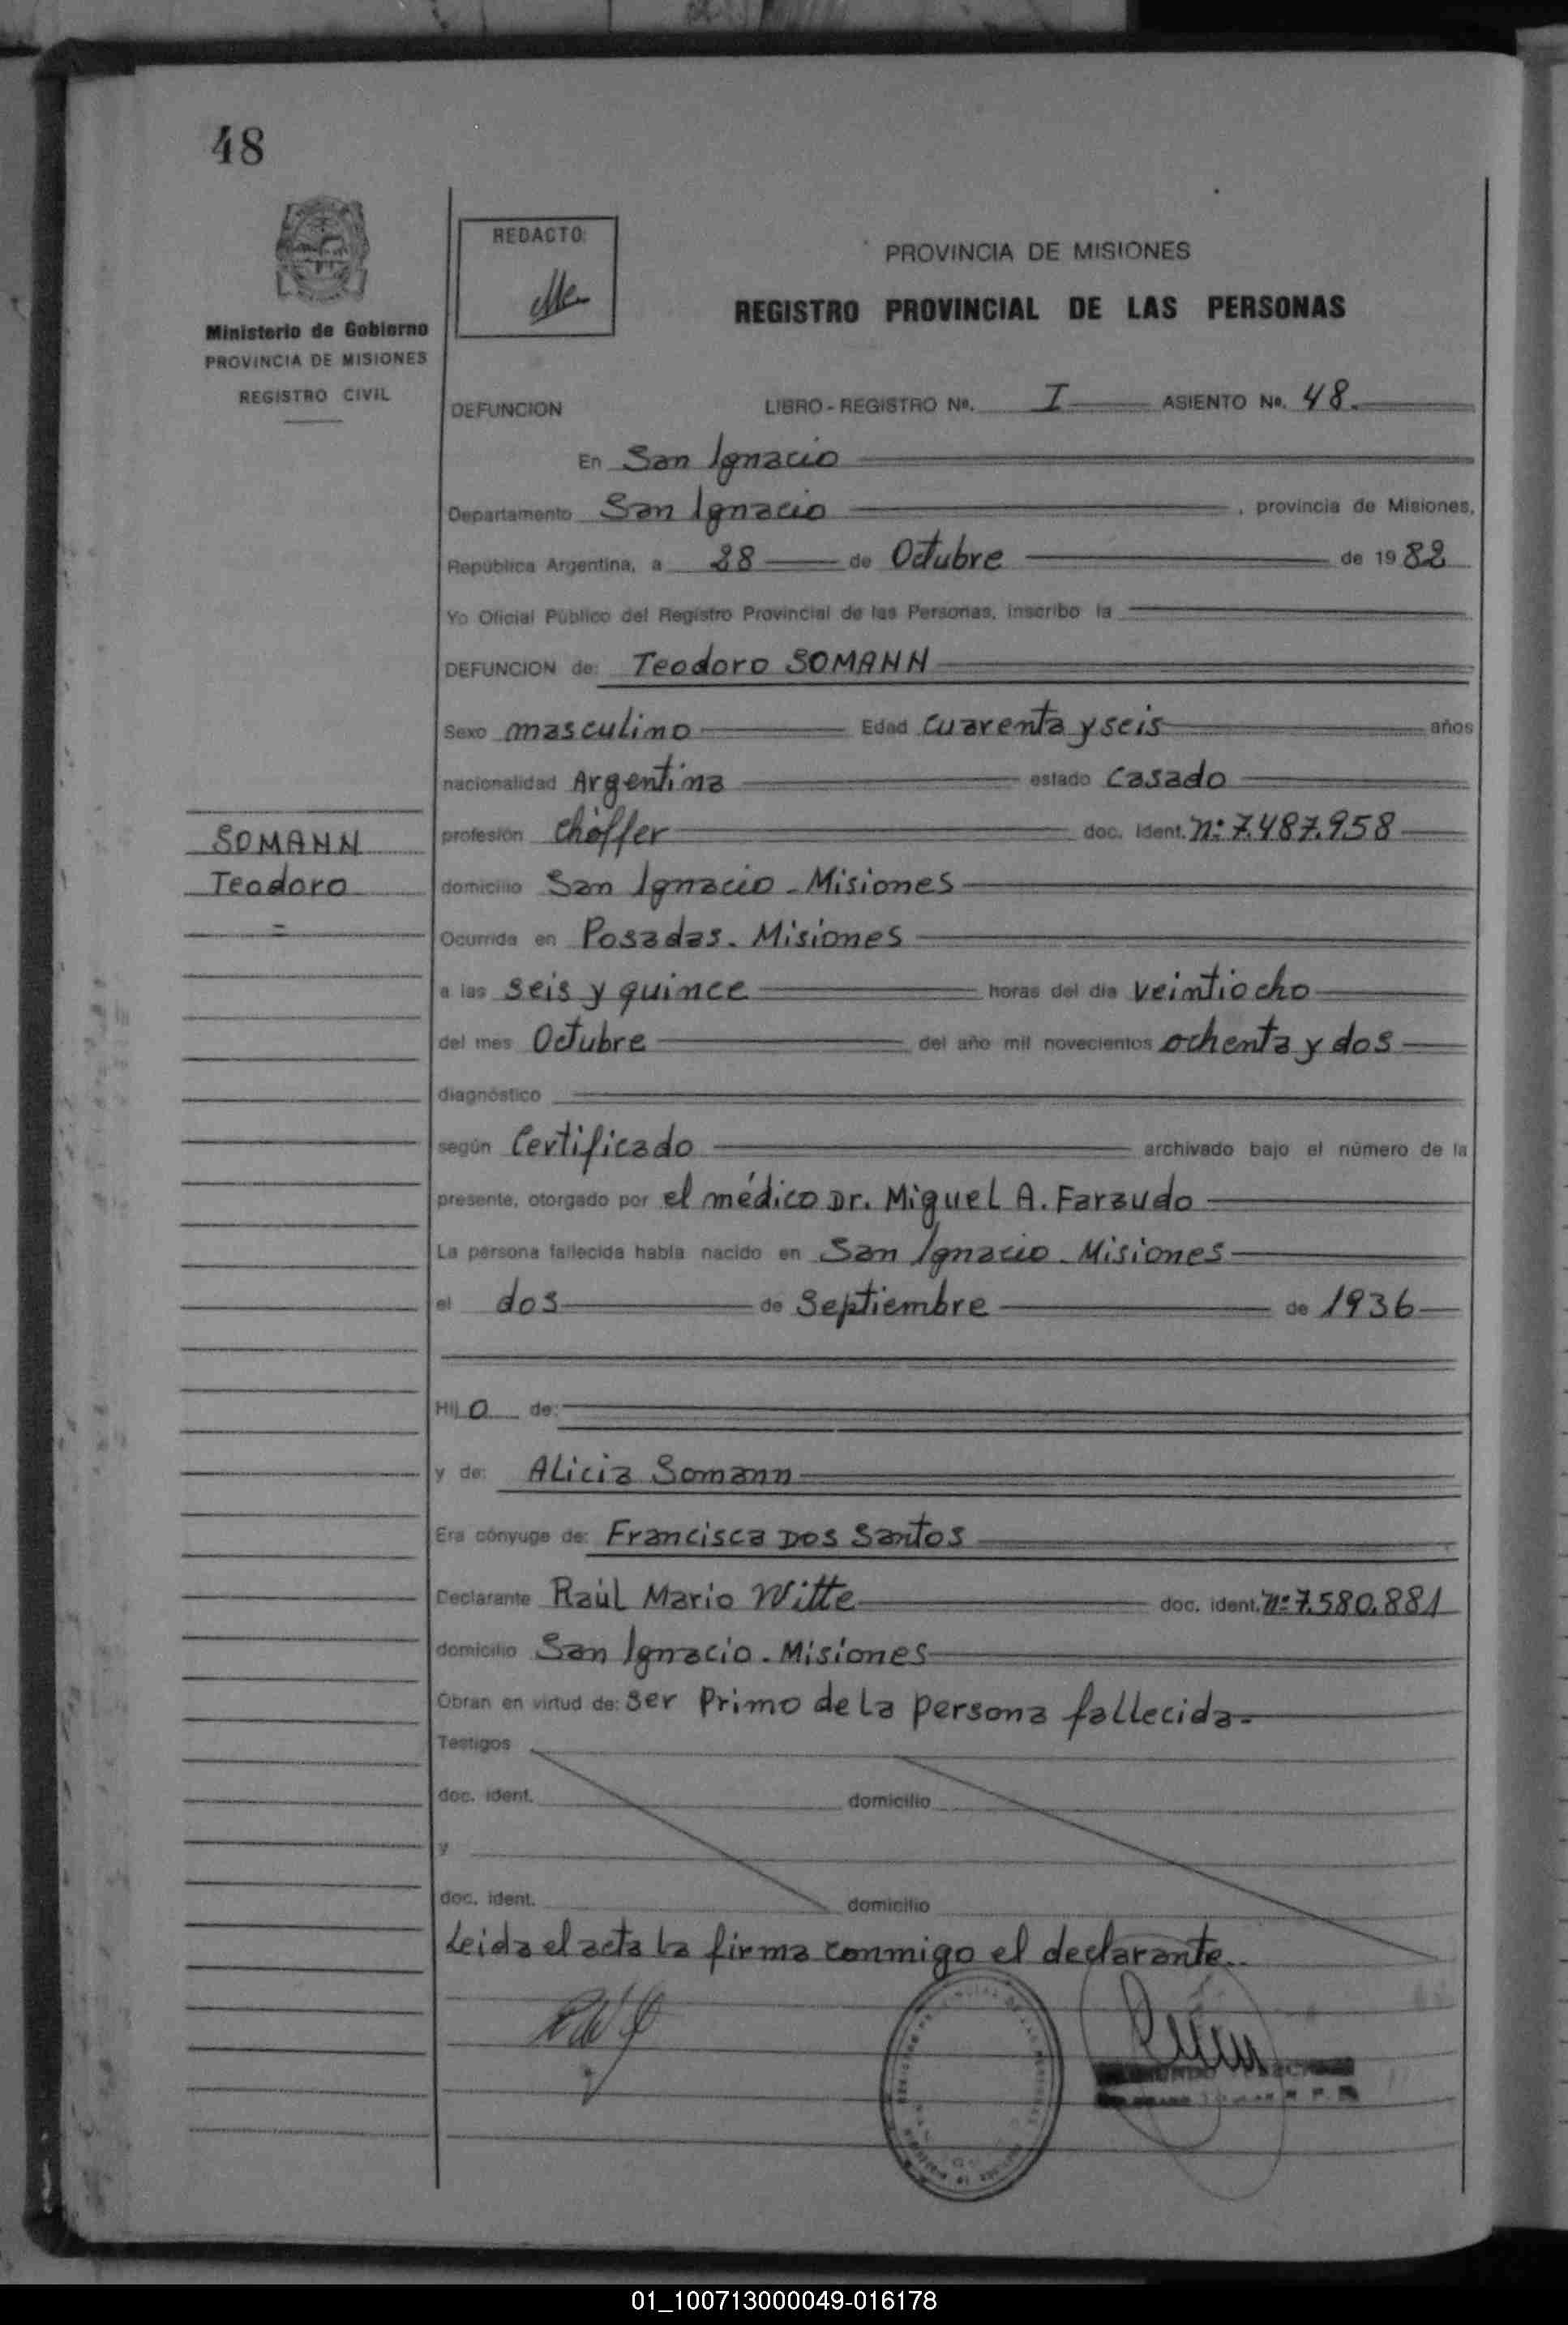 48
REDACTO:
Ministerio de Gobierno
PROVINCIA DE MISIONES
REGISTRO CIVIL
PROVINCIA DE MISIONES
REGISTRO PROVINCIAL DE LAS PERSONAS
DEFUNCION LIBRO-REGISTRO No. I ASIENTO No. 48.
En San Ignacio
Departamento San Ignacio, provincia de Misiones,
República Argentina, a 28 de Octubre de 1982
Yo Oficial Público del Registro Provincial de las Personas, inscribo la
DEFUNCION de: Teodoro SOMANN
Sexo masculino Edad cuarenta y seis años
nacionalidad Argentina estado casado
SOMANN
Teodoro
=
profesión chòffer doc. ident. nº 7.487.958
domicilio San Ignacio - Misiones
Ocurrida en Posadas. Misiones
a las seis y quince horas del día veintiocho
del mes Octubre del año mil novecientos ochenta y dos
diagnóstico
según Certificado archivado bajo el número de la
presente, otorgado por el médico Dr. Miguel A. Faraudo
La persona fallecida había nacido en San Ignacio - Misiones
el dos de Septiembre de 1936
Hijo de:
y de: Alicia Somann
Era cónyuge de: Francisca Dos Santos
Declarante Raúl Mario Witte doc. ident. nº 7.580.881
domicilio San Ignacio. Misiones
Obran en virtud de: ser Primo de la persona fallecida.
Testigos
doc. ident. domicilio
y
doc. ident. domicilio
Leida el acta la firma conmigo el declarante..
01_100713000049-016178